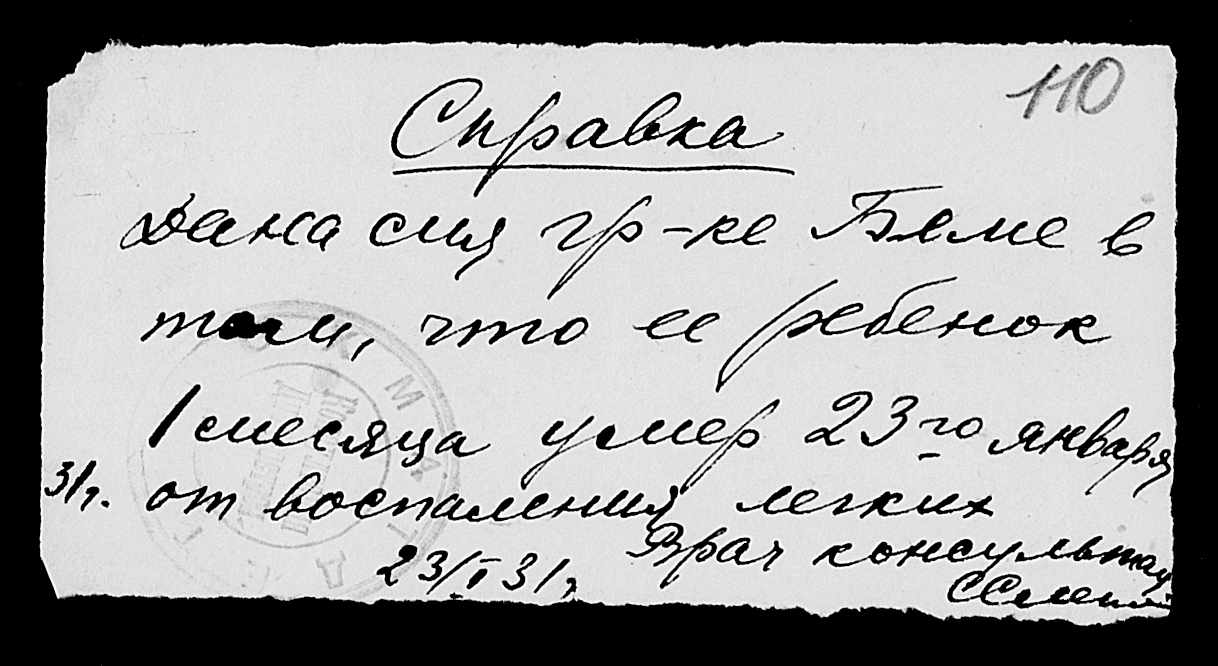 110
Справка
Дана сия гр-ке Беме в
том, что ее ребенок
1 месяца умер 23го января
31г. от воспаления легких
Врач консультац
23/I 31г